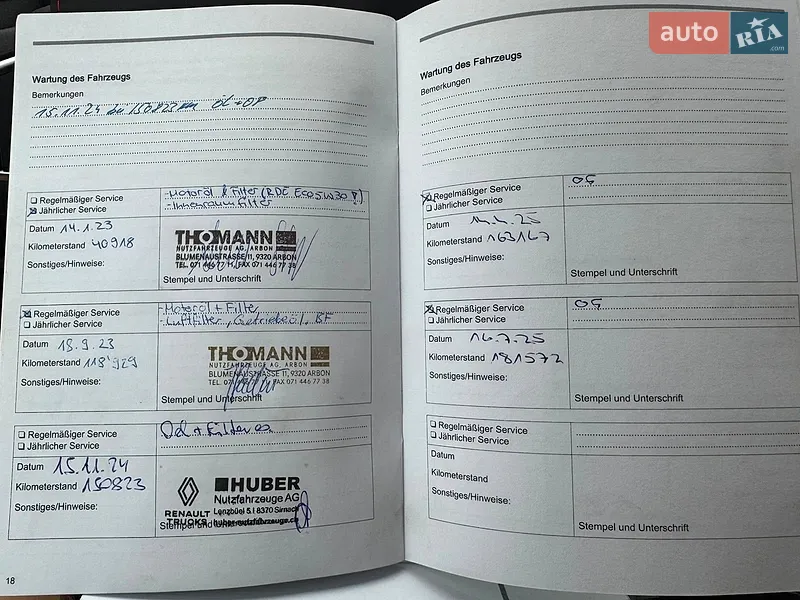 Wartung des Fahrzeugs
Bemerkungen
15.11.24 bei 150823 km Öl + ÖF
☐ Regelmäßiger Service
☒ Jährlicher Service
Datum 14.1.23
Kilometerstand 40918
Sonstiges/Hinweise:
-Motoröl & Filter (RDE Eco 5W30 !)
-Innenraumfilter
THOMANN
NUTZFAHRZEUGE AG, ARBON
BLUMENAUSTRASSE 11, 9320 ARBON
TEL. 071 446 77 11, FAX 071 446 77 38
Stempel und Unterschrift
☒ Regelmäßiger Service
☐ Jährlicher Service
Datum 18.9.23
Kilometerstand 118'929
Sonstiges/Hinweise:
-Motoröl + Filter
-Luftfilter, Getriebeöl, BF
THOMANN
NUTZFAHRZEUGE AG, ARBON
BLUMENAUSTRASSE 11, 9320 ARBON
TEL. 071 446 77 11, FAX 071 446 77 38
Stempel und Unterschrift
☐ Regelmäßiger Service
☐ Jährlicher Service
Datum 15.11.24
Kilometerstand 150823
Sonstiges/Hinweise:
RENAULT
TRUCKS
HUBER
Nutzfahrzeuge AG
Lenzbüel 5 | 8370 Sirnach
huber-nutzfahrzeuge.ch
Stempel und Unterschrift
18
auto RIA .com
Wartung des Fahrzeugs
Bemerkungen
☒ Regelmäßiger Service
☐ Jährlicher Service
Datum 14.4.25
Kilometerstand 163147
Sonstiges/Hinweise:
Stempel und Unterschrift
☒ Regelmäßiger Service
☐ Jährlicher Service
Datum 16.7.25
Kilometerstand 181572
Sonstiges/Hinweise:
Stempel und Unterschrift
☐ Regelmäßiger Service
☐ Jährlicher Service
Datum
Kilometerstand
Sonstiges/Hinweise:
Stempel und Unterschrift